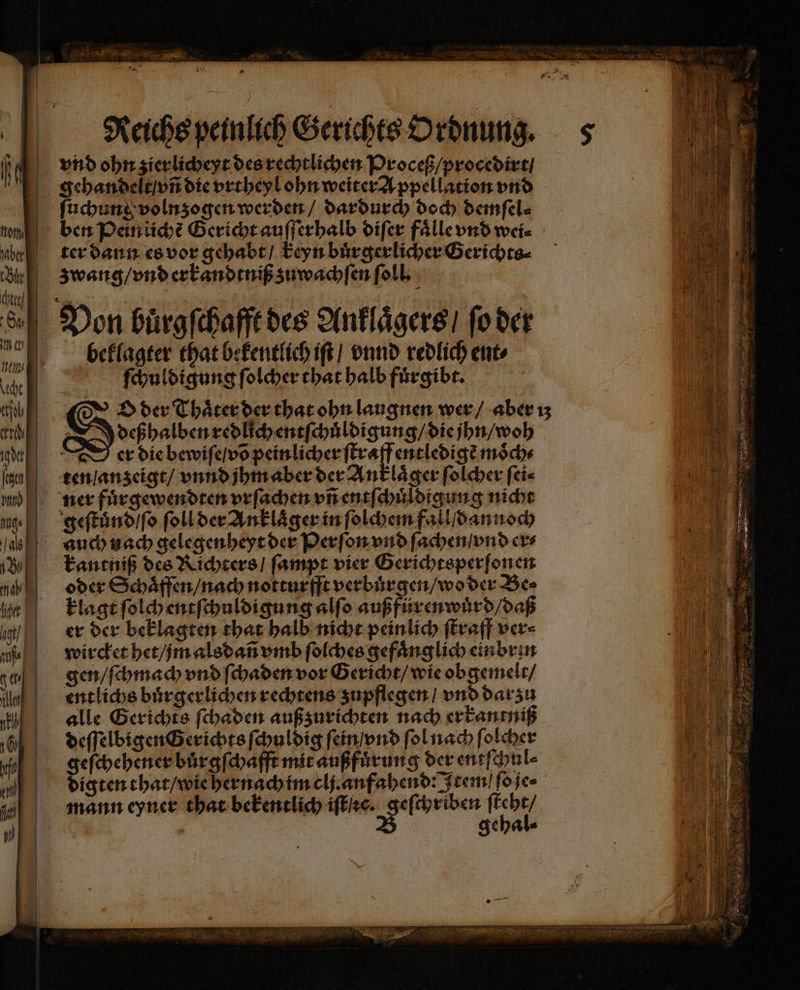 Reichs peinlich Gerichts Ordnung. 5
vnd ohn zierlicheyt des rechtlichen Proceß/procedirt/
gehandelt/vñ die vrtheyl ohn weiter Appellation vnd
ſuchung volnzogen werden / dardurch doch demſel⸗
ben Peinlichẽ Gericht auſſerhalb diſer fålle vnd wei⸗
ter dann es vor gehabt / keyn bůrgerlicher Gerichts⸗
zwang/vnd erkandtniß zuwachſen ſoll.
Von bůrgſchafft des Anklågers / ſo der
beklagter that bekentlich iſt / vnnd redlich ent⸗
ſchuldigung ſolcher that halb fůrgibt.
SO der Thåter der that ohn laugnen wer / aber 13
deßhalben redlich entſchůldigung/die jhn/woh
er die bewiſe/võ peinlicher ſtraff entledigẽ mőch⸗
ten/anzeigt/ vnnd jhm aber der Anklåger ſolcher ſei⸗
ner fůrgewendten vrſachen vñ entſchůldigung nicht
geſtůnd/ſo ſoll der Anklåger in ſolchem fall/dannoch
auch nach gelegenheyt der Perſon vnd ſachen/vnd er⸗
kantniß des Richters / ſampt vier Gerichtsperſonen
oder Schåffen/nach notturfft verbůrgen/wo der Be⸗
klagt ſolch entſchuldigung alſo außfüren wůrd/daß
er der beklagten that halb nicht peinlich ſtraff ver⸗
wircket het/jm alsdañ vmb ſolches gefånglich einbrin
gen/ſchmach vnd ſchaden vor Gericht/ wie obgemelt/
entlichs bůrgerlichen rechtens zupflegen / vnd darzu
alle Gerichts ſchaden außzurichten nach erkantniß
deſſelbigen Gerichts ſchuldig ſein/vnd ſol nach ſolcher
geſchehener bůrgſchafft mit außfůrung der entſchul⸗
digten that/wie hernach im clj. anfahend: Item/ ſo je⸗
mann eyner that bekentlich iſt/ꝛc. geſchriben ſteht/
B gehal⸗